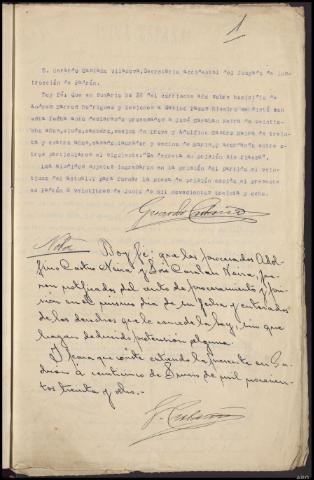 1
D. Gerardo Cardada Vilanova, Secretario accidental del Juzgado de Ins-
trucción de Padrón.
Doy fé: Que en sumario Nº 26 del corriente año sobre homicidio de
Andres Barros Rodriguez y lesiones a
esta fecha auto declarando procesados a José Neira de veintio-
cho años, vecino de y Adolfino Castro Neira de trein-
ta y cuatro años, casado, labrador y vecino de y acordando entre o-
tros particulares el siguiente: "Se decreta su prisión sin fianza".
Los aludidos sujetos ingresaron en la prisión del partido el vein-
tiuno del actual. Y para formar la pieza de prisión expido el presente
en Padrón a veintitres de Junio de mil novecientos treinta y ocho.
Gerardo
Nota Doy fé; que los procesados Adol-
fino Castro Neira y José Neira, fue-
ron notificados del auto de procesamiento y pri-
sión en el mismo dia de su fecha y enterados
de los derechos que le concede la Ley, sin que
hayan deducido pretensión alguna.
Y para que conste extiendo la presente en Pa-
drón a de Junio de mil novecien-
tos treinta y ocho.-
G.